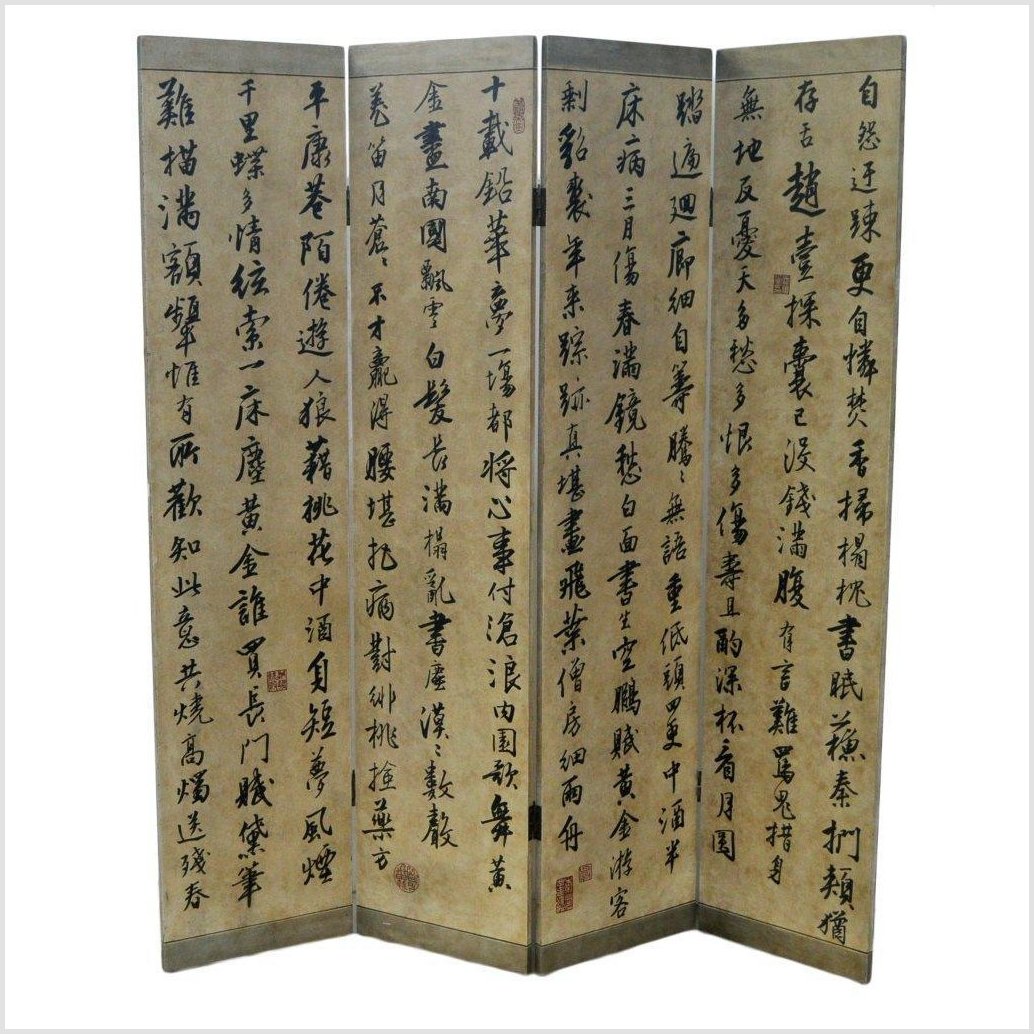 自怨迂疎更自憐焚香掃榻枕書眠蘇秦捫頰猶
存舌趙壹探囊已沒錢滿腹有言難罵鬼措身
無地反憂天多愁多恨多傷壽且酌深杯看月圓
踏遍迴廊細自籌騰〻無語重低頭四更中酒半
床病三月傷春滿鏡愁白面書生空鵬賦黃金游客
剩貂裘年来踪跡真堪畫飛葉僧房細雨舟
十載鉛華夢一場都將心事付滄浪內園歌舞黃
金盡南國飄零白髮長滿榻亂書塵漠〻數聲
羌笛月蒼〻不才羸得腰堪把病對緋桃撿藥方
平康巷陌倦遊人狼藉桃花中酒身短夢風煙
千里蝶多情絃索一床塵黃金誰買長門賦黛筆
難描滿額顰惟有所歡知此意共燒高燭送殘春